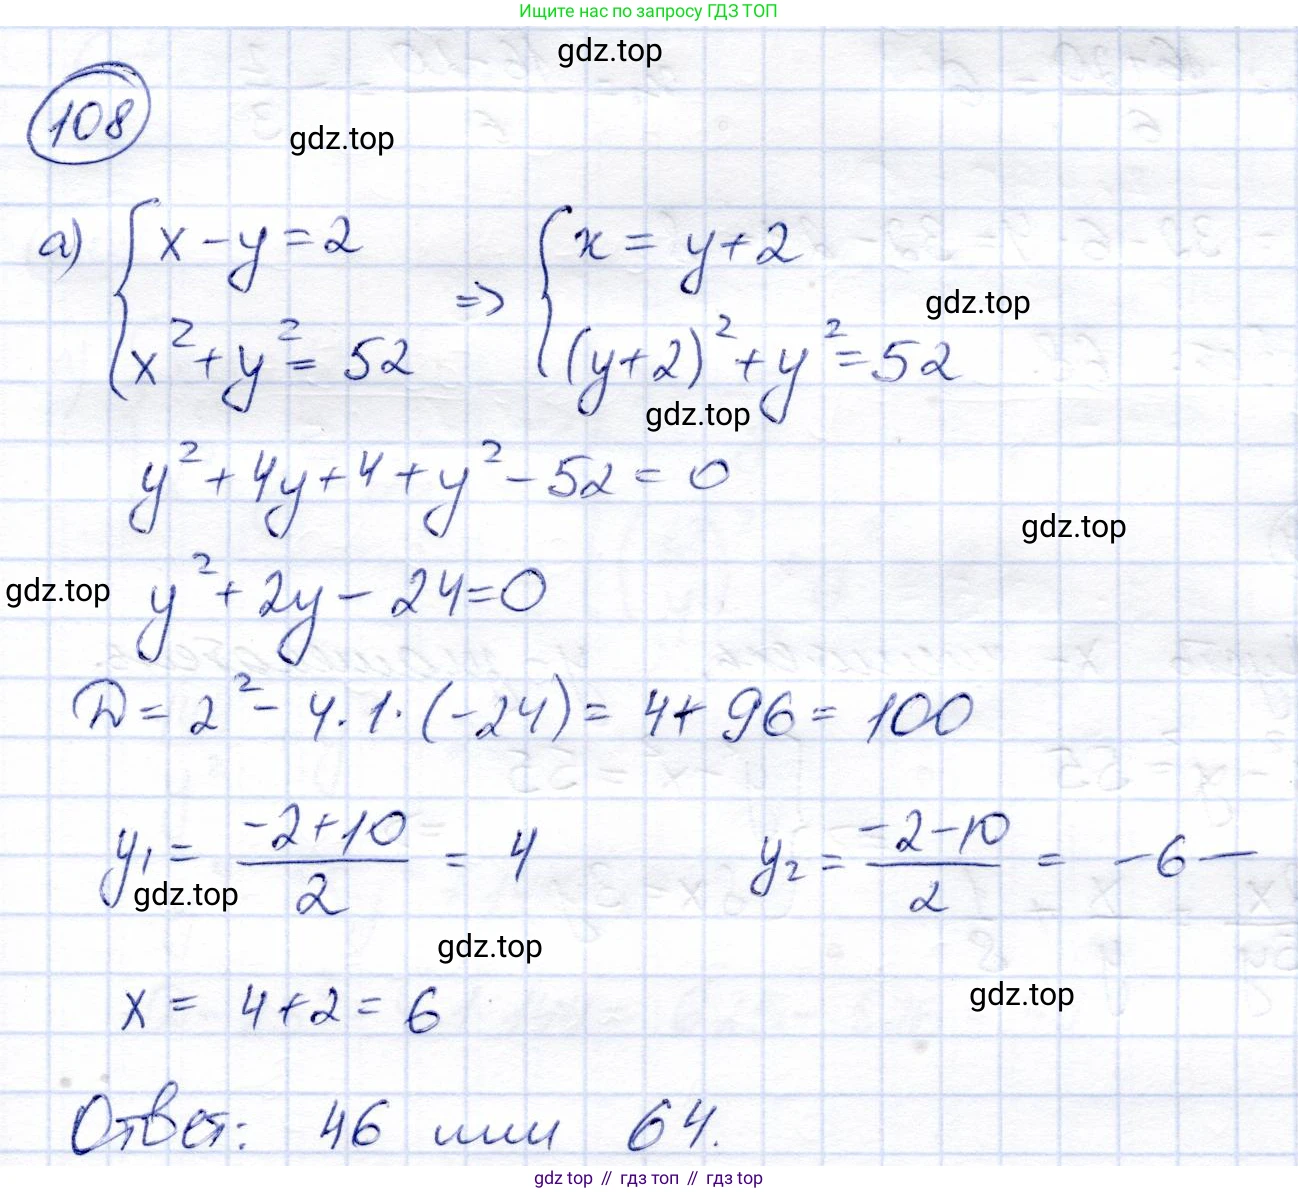 Ищите нас по запросу ГДЗ ТОП
gdz.top
108
gdz.top
а) { x - y = 2 => { x = y + 2
gdz.top
x² + y² = 52 (y+2)² + y² = 52
gdz.top
y² + 4y + 4 + y² - 52 = 0
gdz.top
gdz.top
y² + 2y - 24 = 0
D = 2² - 4 · 1 · (-24) = 4 + 96 = 100
y₁ = (-2+10)/2 = 4 y₂ = (-2-10)/2 = -6 —
gdz.top
gdz.top
gdz.top
x = 4 + 2 = 6
Ответ: 46 или 64.
gdz.top // гдз топ // гдз top